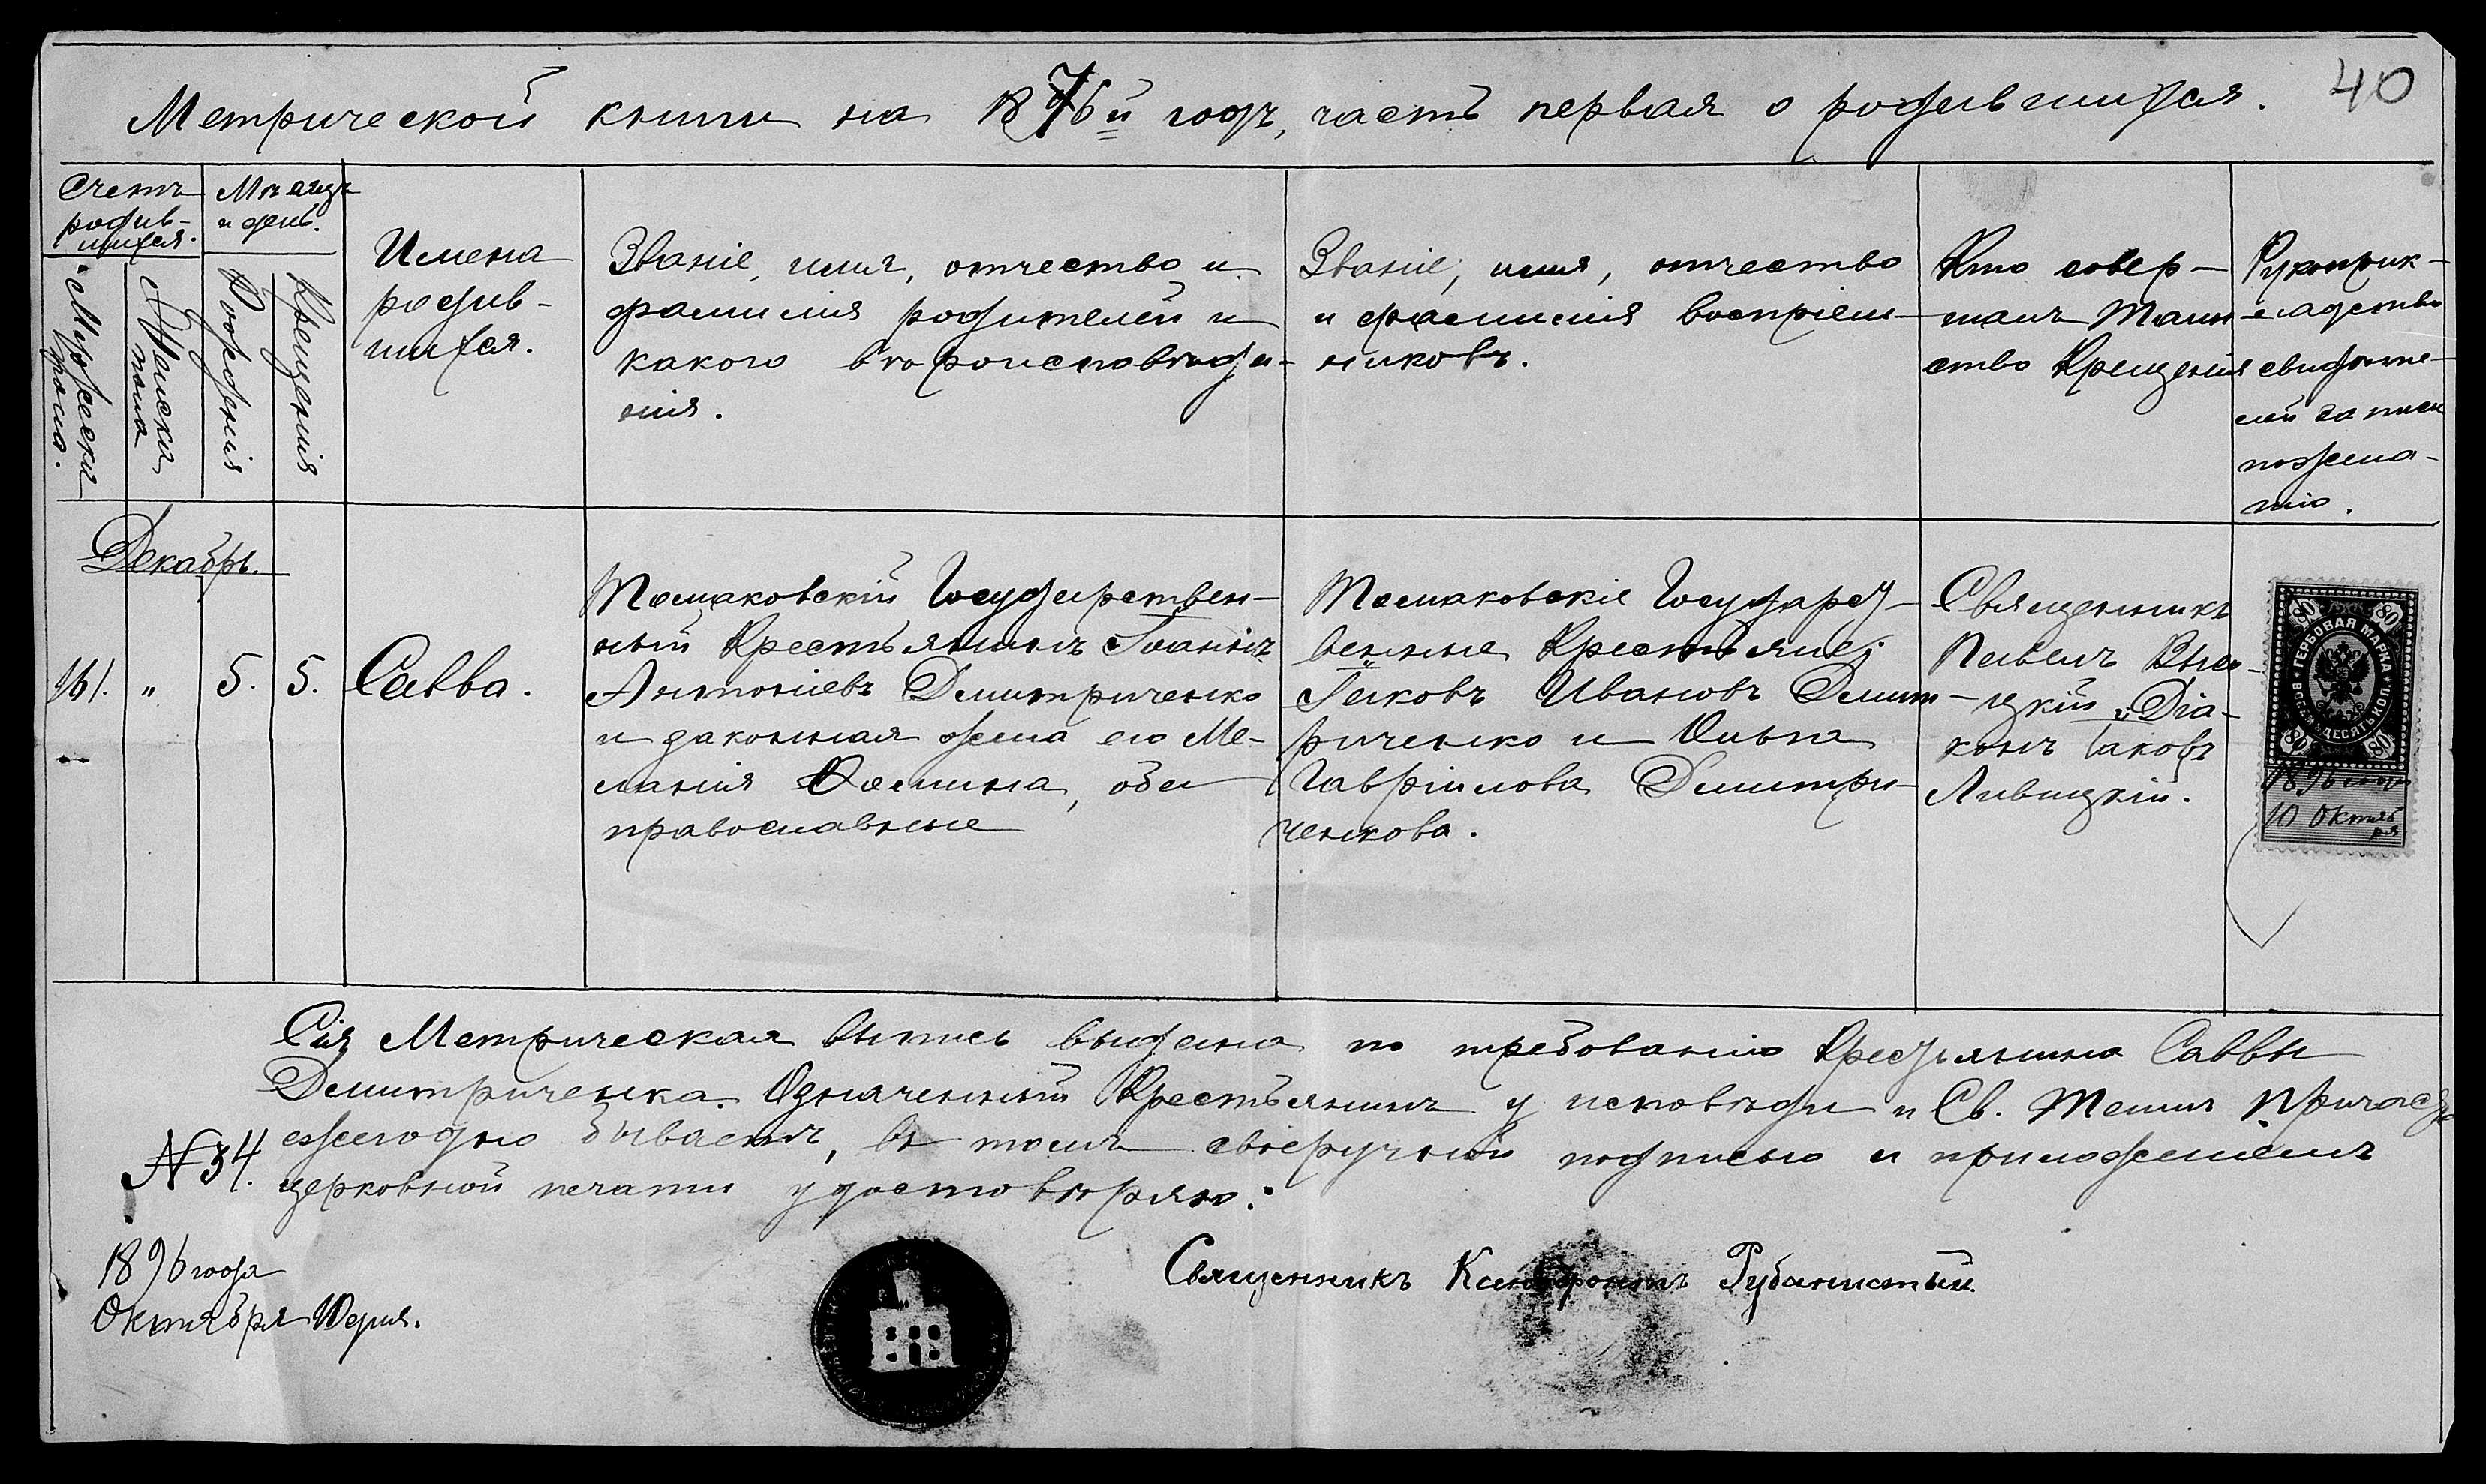 40
Метрической книги на 1876й годъ, часть первая о родившихся.
Счетъ родив-
шихся.
Мѣсяцъ
и день.
Мужеска
пола.
Женска
пола
Рожденія
Крещенія
Имена
родив-
шихся.
Званіе, имя, отчество и
фамилія родителей и
какого вѣроисповѣде-
нія.
Званіе, имя, отчество
и фамилія воспріем-
никовъ.
Кто совер-
шалъ Таин
ство Крещенія
Рукоприк-
ладство
свидѣте-
лей записи
по жела-
нію.
Декабрь.
161.
"
5.
5.
Савва.
Томаковскій Государствен-
ный Крестьянинъ Іоаннъ
Антоніевъ Димитриченко
и законная жена его Ме-
ланія Фомина, оба
православные
Томаковскіе Государст-
венные Крестьяне:
Іяковъ Ивановъ Димит-
риченко и Ольга
Гавріилова Димитри-
ченкова.
Священникъ
Павелъ
и Діа-
конъ Іаковъ
Ливицкій.
80 80
ГЕРБОВАЯ МАРКА
ВОСЕМЬДЕСЯТЪ КОП.
80 80
1896 года
10 Октяб
ря
Сія Метрическая выпись выдана по требованію Крестьянина Саввы
Димитриченка. Означенный Крестьянинъ у исповѣди и Св. Таинъ Причастія
ежегодно бываетъ, въ томъ своеручной подписью и приложеніемъ
№ 34. церковной печати удостовѣряю:
1896 года
Октября 10 дня.
Священникъ Ксенофонтъ Рубанистый.